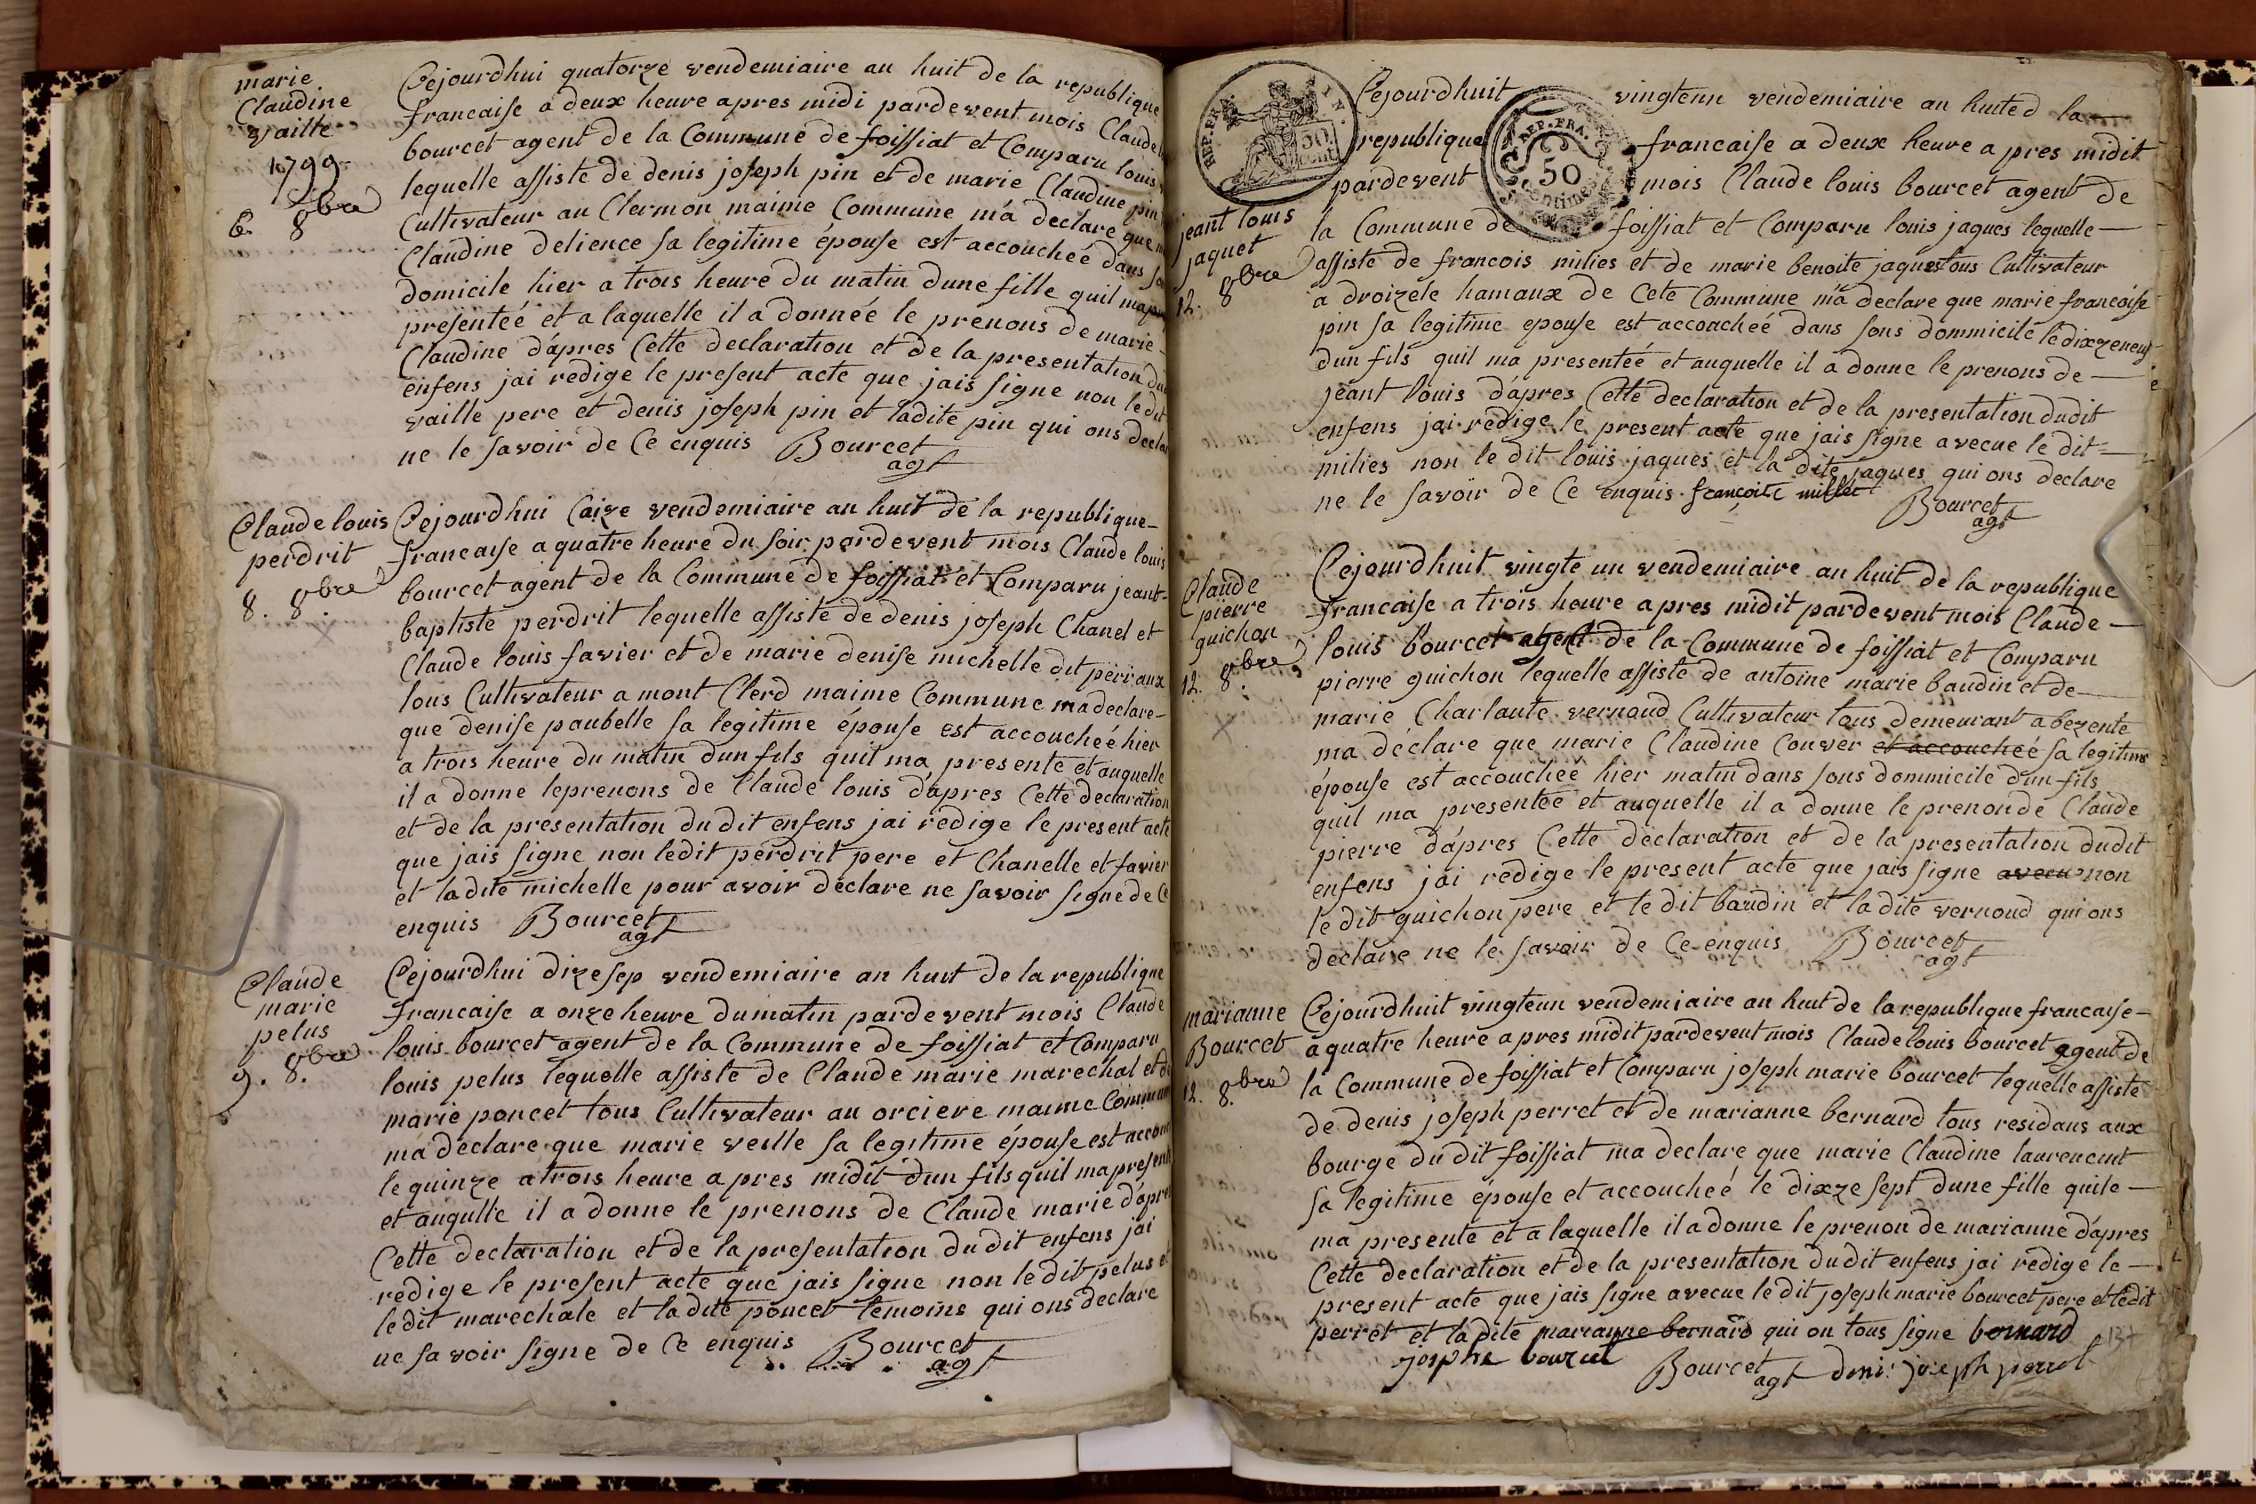 marie
Claudine
vaille
1799
6. 8bre
Cejourdhui quatorze vendemiaire an huit de la republique
francaise a deux heure apres midi pardevent mois Claude
bourcet agent de la Commune de foissiat et Comparu louis
lequelle assiste de denis joseph pin et de marie Claudine pin
Cultivateur au Clermon maime Commune ma declare que
Claudine delience sa legitime épouse est accoucheé dans
domicile hier a trois heure du matin dune fille quil ma
presenteé et a laquelle il a donnée le prenons de marie
Claudine dapres Cette declaration et de la presentation du
enfens jai redige le present acte que jais signe non le dit
vaille pere et denis joseph pin et ladite pin qui ons declar
ne le savoir de Ce enquis Bourcet
agt
Claude louis
perdrit
8. 8bre
Cejourdhui Caize vendemiaire an huit de la republique
francaise a quatre heure du soir pardevent mois Claude louis
bourcet agent de la Commune de foissiat et Comparu jeant
baptiste perdrit lequelle assiste de denis joseph Chanel et
Claude louis favier et de marie denise michelle dit perraux
tous Cultivateur a mont Clerd maime Commune ma declare
que denise paubelle sa legitime épouse est accoucheé hier
a trois heure du matin dun fils quil ma presente et auquelle
il a donne leprenons de Claude louis dapres Cette declaration
et de la presentation du dit enfens jai redige le present acte
que jais signe non ledit perdrit pere et Chanelle et favier
et ladite michelle pour avoir declare ne savoir signe de Ce
enquis Bourcet
agt
Claude
marie
pelus
9. 8bre
Cejourdhui dizesep vendemiaire an huit de la republique
francaise a onze heure du matin pardevent mois Claude
louis bourcet agent de la Commune de foissiat et Comparu
louis pelus lequelle assiste de Claude marie marechal et de
marie poncet tous Cultivateur au orciere maime Commune
ma declare que marie veille sa legitime épouse est accou
le quinze a trois heure apres midit dun fils quil ma presente
et auqulle il a donne le prenons de Claude marie dapres
Cette declaration et de la presentation du dit enfens jai
redige le present acte que jais signe non le dit pelus et
ledit marechale et la dite poncet temoins qui ons declare
ne savoir signe de Ce enquis Bourcet
agt
REP. FRA.
50
cent.
REP. FRA.
50
Centimes
jeant louis
jaquet
12. 8bre
Cejourdhuit vingtenn vendemiaire an huited la
republique francaise a deux heure apres midit
pardevent mois Claude louis bourcet agent de
la Commune de foissiat et Comparu louis jaques lequelle
assiste de francois milies et de marie benoite jaques tous Cultivateur
a droizele hamaux de Cete Commune ma declare que marie francoise
pin sa legitime epouse est accoacheé dans sons dommicile le dixzeneuf
dun fils quil ma presenteé et auquelle il a donne le prenons de
jeant louis dapres Cette declaration et de la presentation dudit
enfens jai redige le present acte que jais signe avecue le dit
milies non le dit louis jaques et la dite jaques qui ons declare
ne le savoir de Ce enquis françoite millet Bourcet
agt
Claude
pierre
guichon
12. 8bre
Cejourdhuit vingte un vendemiaire an huit de la republique
francaise a trois heure apres midit pardevent mois Claude
louis bourcet agent de la Commune de foissiat et Comparu
pierre guichon lequelle assiste de antoine marie baudin et de
marie Charlaute vernoud Cultivateur tous demeurant a bezente
ma déclare que marie Claudine Conver et accoucheé sa legitime
épouse est accoucheé hier matin dans sons dommicile dun fils
quil ma presenteé et auquelle il a donne le prenon de Claude
pierre dapres Cette declaration et de la presentation dudit
enfens jai redige le present acte que jais signe avecue non
le dit guichon pere et le dit baudin et ladite vernoud qui ons
declare ne le savoir de Ce enquis Bourcet
agt
marianne
Bourcet
12. 8bre
Cejourdhuit vingtenn vendemiaire an huit de la republique francaise
a quatre heure apres midit pardevent mois Claude louis bourcet agent de
la Commune de foissiat et Comparu joseph marie bourcet lequelle assiste
de denis joseph perret et de marianne bernard tous residans aux
bourge du dit foissiat ma declare que marie Claudine laurencent
sa legitime épouse et accoucheé le dixze sept dune fille quile
ma presente et a laquelle il a donne le prenon de marianne dapres
Cette declaration et de la presentation du dit enfens jai redige le
present acte que jais signe avecue le dit joseph marie bourcet pere et ledit
perret et la dite marianne bernard qui on tous signe bernard
josephe bourcet Bourcet agt deni joseph perret